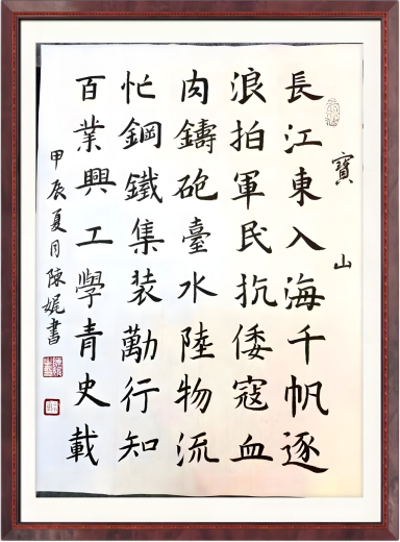 寶山
長江東入海千帆逐
浪拍軍民抗倭寇血
肉鑄砲臺水陸物流
忙鋼鐵集装勵行知
百業興工學青史載
甲辰夏月陳娓書